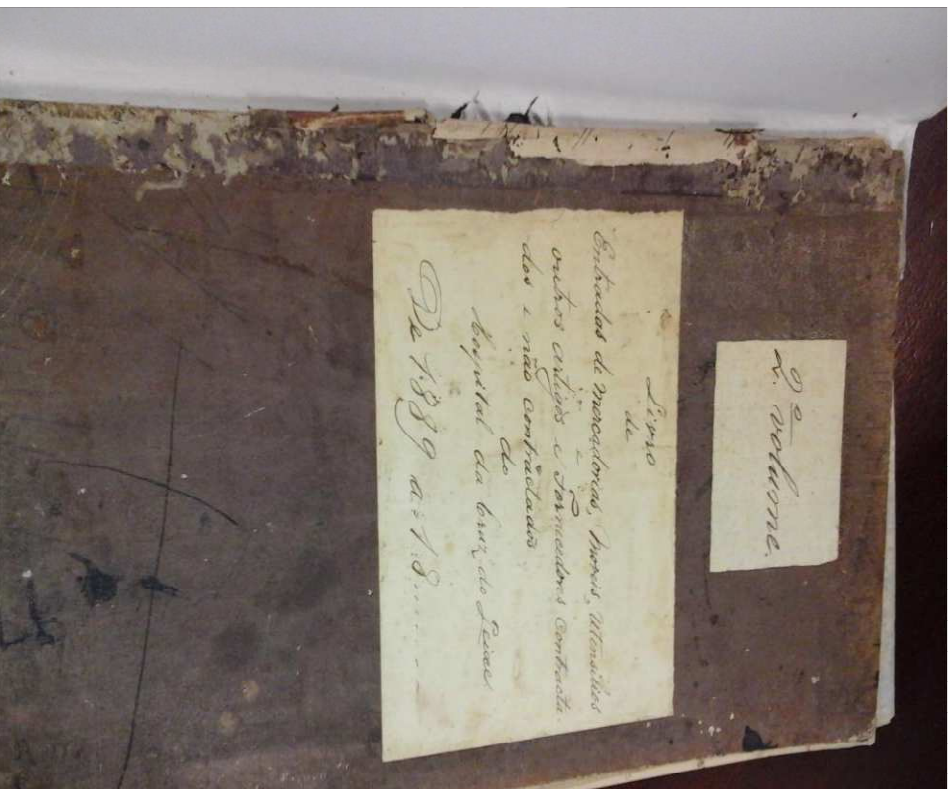 2º volume.
Livro
de
Entradas de mercadorias, moveis, utensilios
outros artigos e Fornecedores contracta-
dos e não contractados
do
Hospital da Cruz do
De 1889 a 18